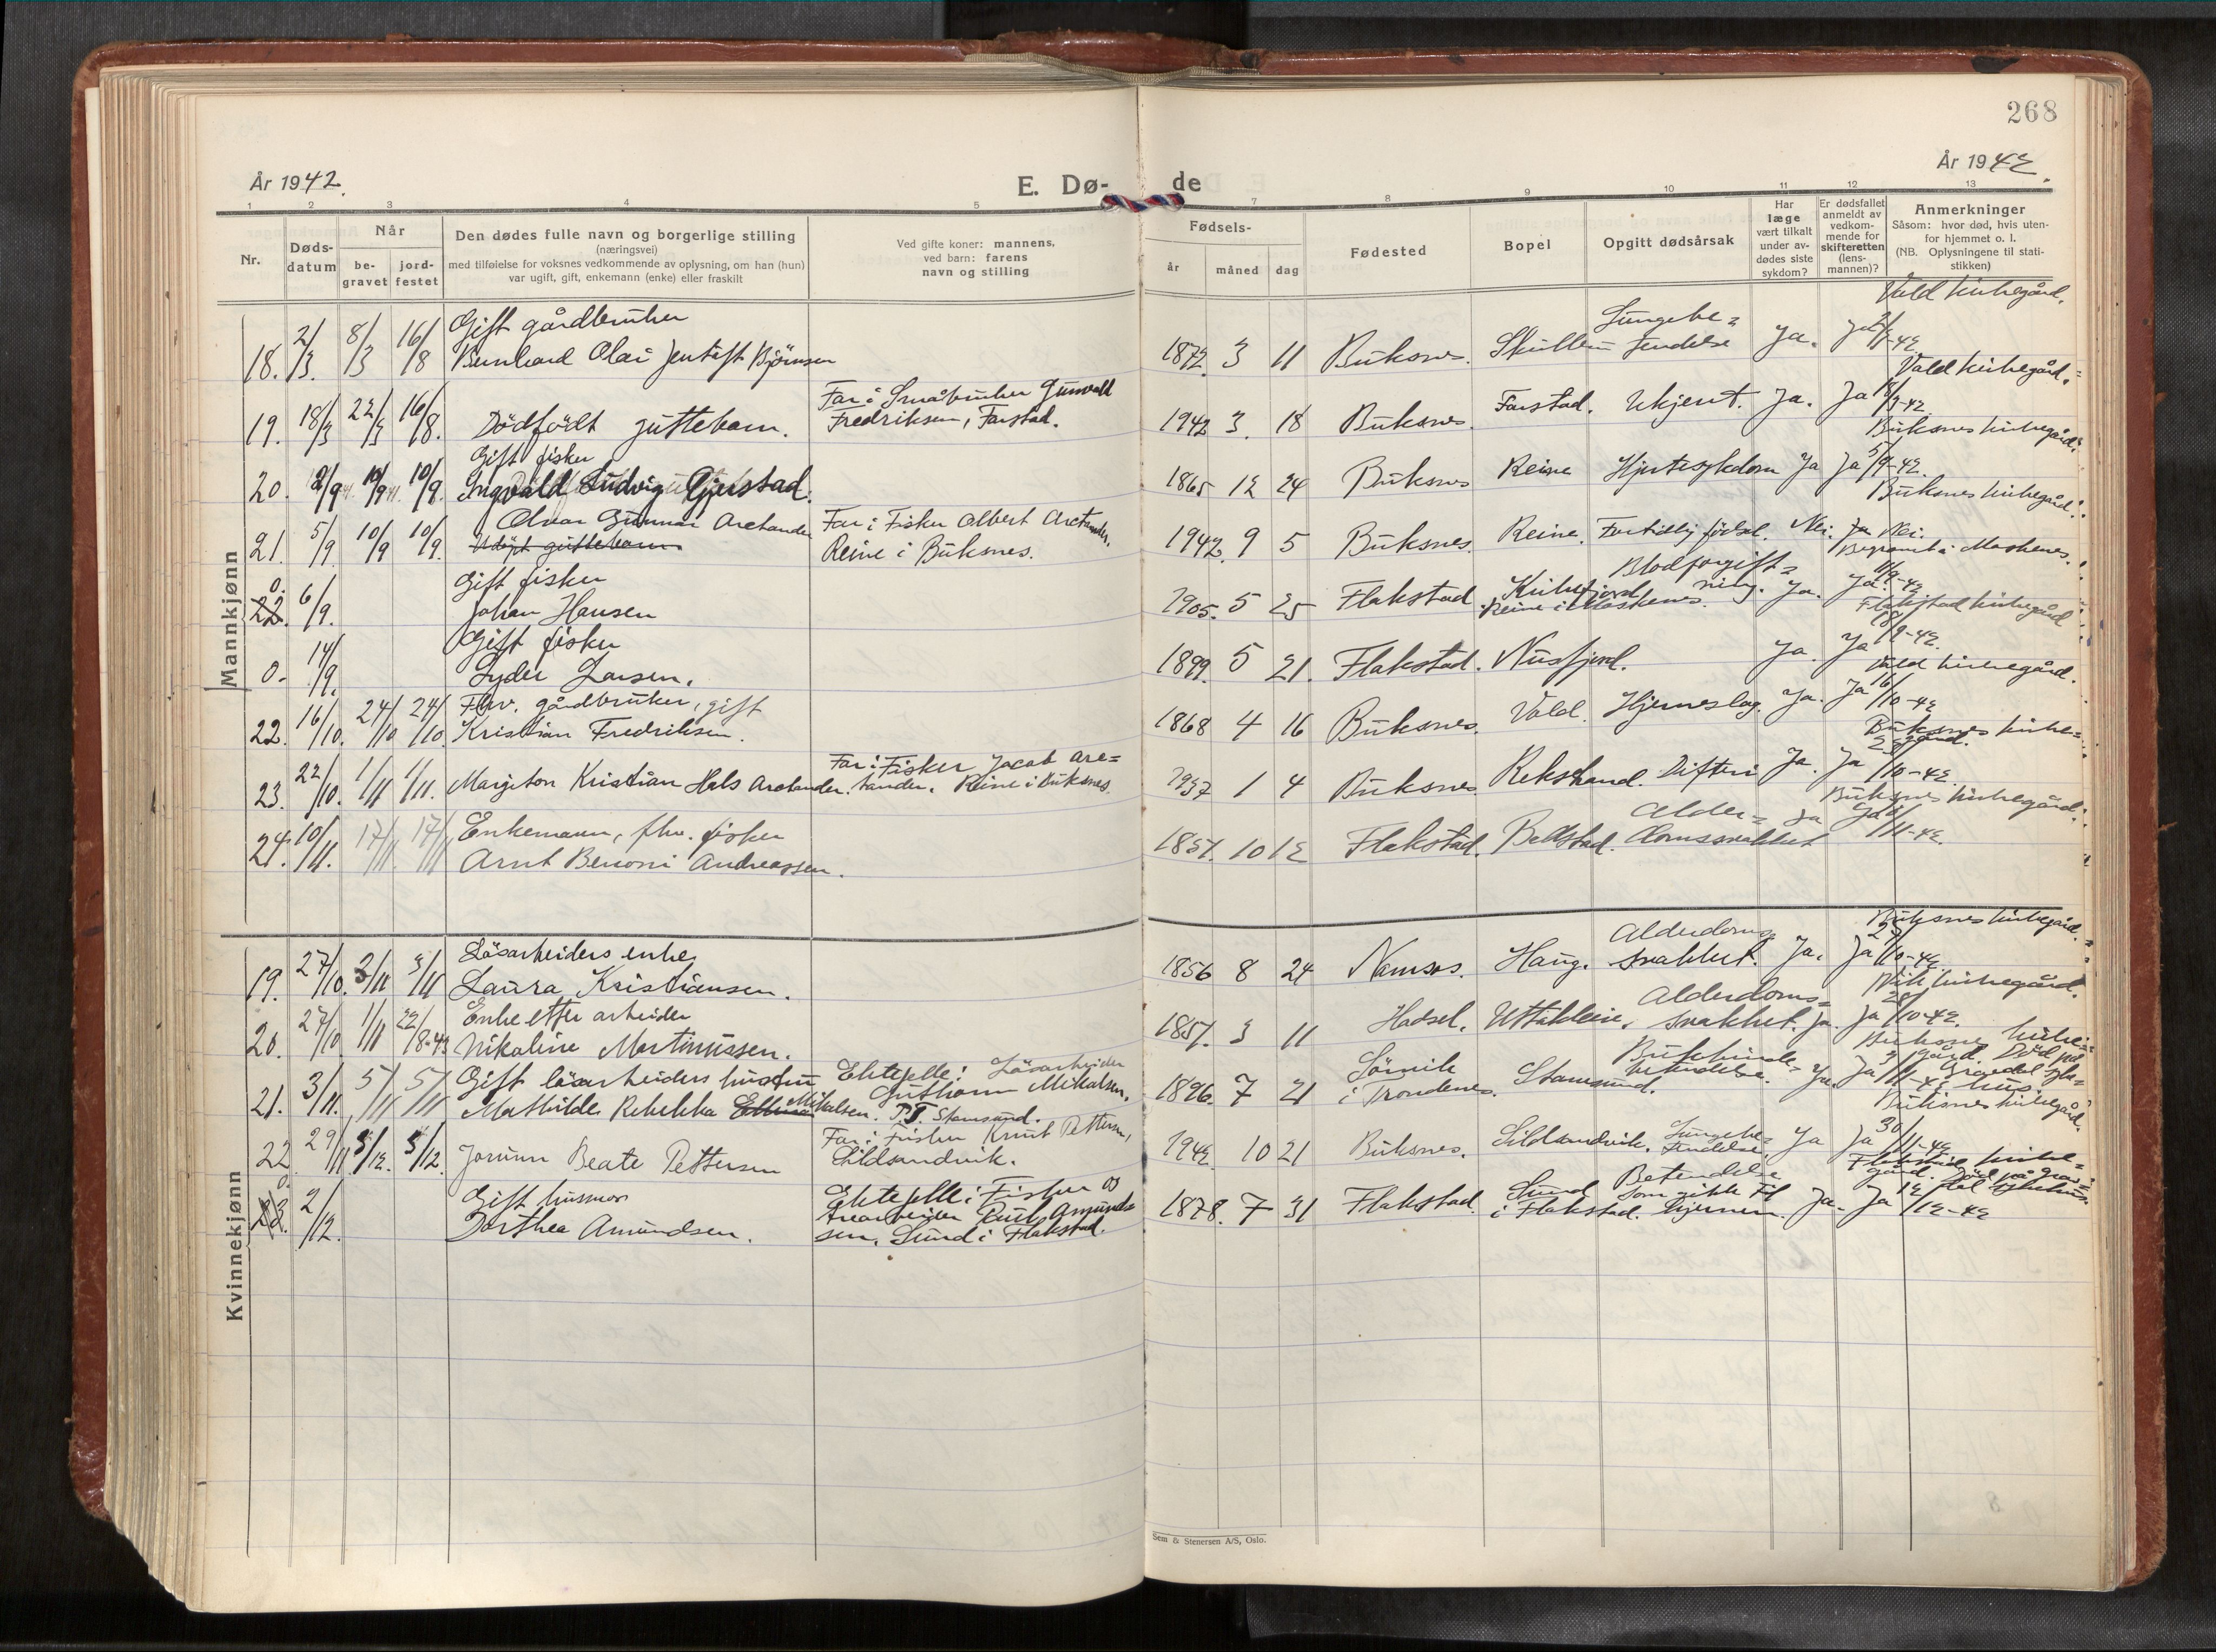 268
År 1942.
År 1942.
E. Dø-
de
1 2 3 4 5 7 8 9 10 11 12 13
Nr.
Døds-
datum
Når
be-
gravet
jord-
festet
Den dødes fulle navn og borgerlige stilling
(næringsvei)
med tilføielse for voksnes vedkommende av oplysning, om han (hun)
var ugift, gift, enkemann (enke) eller fraskilt
Ved gifte koner: mannens,
ved barn: farens
navn og stilling
Fødsels-
år
måned
dag
Fødested
Bopel
Opgitt dødsårsak
Har
læge
vært tilkalt
under av-
dødes siste
sykdom?
Er dødsfallet
anmeldt av
vedkom-
mende for
skifteretten
(lens-
mannen)?
Anmerkninger
Såsom: hvor død, hvis uten-
for hjemmet o. l.
(NB. Oplysningene til stati-
stikken)
Mannkjønn
18. 2/3. 8/3 16/8
Gift gårdbruker
Bernhard Olai Jentoft Bjørnsen
1872. 3 11 Buksnes.
Lungebe=
tendelse
Ja. Ja
Vald kirkegård.
19. 18/3 22/3 16/8.
Dödfödt guttebarn.
Far: Småbruker Gunvald
Fredriksen, Farstad.
1942 3. 18 Buksnes. Farstad. Ukjent. Ja. Ja 18/3-42.
Vald kirkegård.
20. 2/9 10/9 10/9.
Gift fisker
Ingvald Ludvig Gjerstad.
1865 12 24 Buksnes Reine Hjertesykdom Ja Ja 5/9-42.
Buksnes kirkegård.
21. 5/9. 10/9 10/9.
Olvar Gunnar Arctander
Udöpt guttebarn
Far: Fisker Albert Arctander.
Reine i Buksnes.
1942. 9 5 Buksnes. Reine. Fortidlig födsel. Nei. Ja Nei.
Buksnes kirkegård.
0.
22. 6/9.
Gift fisker
Johan Hansen
1905. 5 25 Flakstad
Kirkefjord
Reine i Moskenes.
Blodforgift=
ning. Ja. Ja. 11/9-42
Begravet i Moskenes.
0. 14/9.
Gift fisker
Lyder Larsen.
1899. 5 21. Flakstad. Nusfjord. Ja. Ja 18/9-42.
Flakstad kirkegård
22. 16/10. 24/10 24/10.
Fhv. gårdbruker, gift
Kristian Fredriksen.
1868 4 16 Buksnes. Vald. Hjerneslag. Ja. Ja 16/10-42
Vald kirkegård.
23. 22/10. 1/11 1/11.
Margiton Kristian Hals Arctander.
Far: Fisker Jacob Arc=
tander. Reine i Buksnes.
1937 1 4 Buksnes Difteri Ja. Ja
Buksnes kirke=
gård.
24. 10/11. 17/11 17/11
Enkemann, fhv. fisker
Arnt Benoni Andreassen.
1851. 10 12 Flakstad. Ballstad.
Alder=
domssvakhet Ja Ja
Buksnes kirkegård.
Kvinnekjønn
19. 27/10. 3/11 3/11
Lösarbeiders enke
Laura Kristiansen.
1856 8 24 Namsos. Haug.
Alderdoms=
svakhet. Ja. Ja 27/10-42.
Buksnes kirkegård.
20. 27/10 1/11 22/8-43
Enke etter arbeider
Nikoline Martinussen.
1851. 3 11 Hadsel. Uttakleiv.
Alderdoms=
svakhet. Ja. Ja 28/10-42.
Vik kirkegård.
21. 3/11. 5/11 5/11
Gift lösarbeiders hustru
Mathilde Rebekka Mikalsen.
Ektefelle: Lösarbeider
Guthorm Mikalsen.
P.T. Stamsund.
1896. 7 21
Sörvik
i Trondenes. Stamsund.
Bukhinde=
betendelse. Ja. Ja 3/11-42
Buksnes kirke=
gård. Död på
Gravdal syke=
hus.
22 29/11 5/12. 5/12.
Jorunn Beate Pettersen
Far: Fisker Knut Pettersen,
Sildsandvik.
1942. 10 21 Buksnes. Sildsandvik.
Lungebe=
tendelse. Ja Ja 30/11-42
Buksnes kirkegård.
0.
23. 2/12.
Gift husmor
Dorthea Amundsen.
Ektefelle: Fisker og
Amund=
sen. Sund i Flakstad.
1878. 7 31 Flakstad.
Sund
i Flakstad.
Betendelse
som gikk til
hjernen. Ja. Ja 12/12-42
Flakstad kirke=
gård. Död på Grav=
dal sykehus
Sem & Stenersen A/S, Oslo.